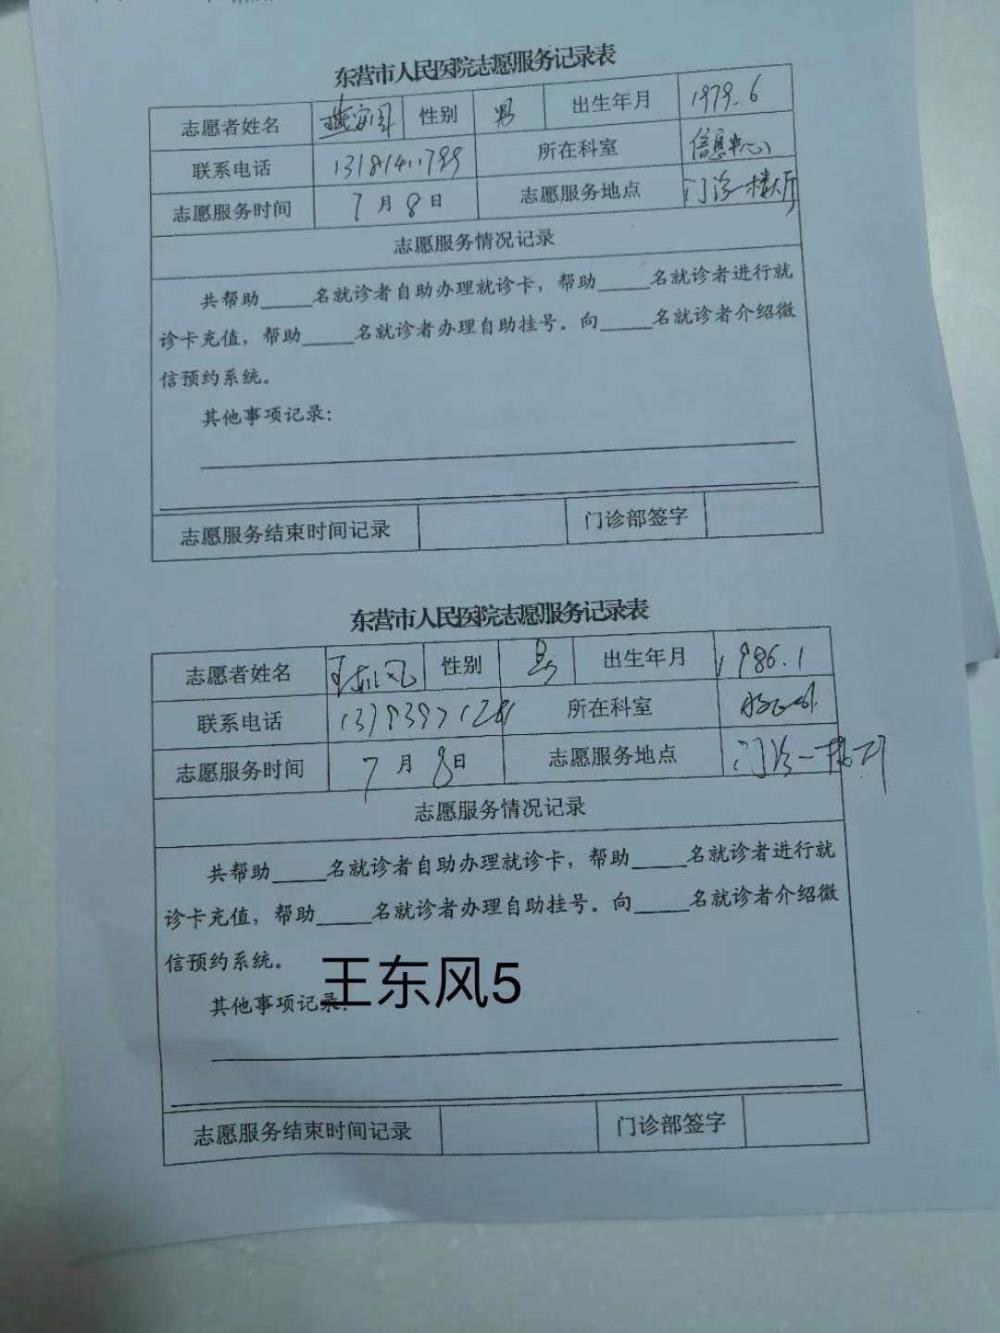 东营市人民医院志愿服务记录表
志愿者姓名 性别 男 出生年月 1979.6
联系电话 所在科室 信息中心
志愿服务时间 7月8日 志愿服务地点 门诊一楼大厅
志愿服务情况记录
共帮助____名就诊者自助办理就诊卡，帮助____名就诊者进行就
诊卡充值，帮助____名就诊者办理自助挂号。向____名就诊者介绍微
信预约系统。
其他事项记录：
志愿服务结束时间记录 门诊部签字
东营市人民医院志愿服务记录表
志愿者姓名 王东风 性别 男 出生年月 1986.1
联系电话 所在科室
志愿服务时间 7月8日 志愿服务地点 门诊一楼大厅
志愿服务情况记录
共帮助____名就诊者自助办理就诊卡，帮助____名就诊者进行就
诊卡充值，帮助____名就诊者办理自助挂号。向____名就诊者介绍微
信预约系统。
王东风5
其他事项记录：
志愿服务结束时间记录 门诊部签字